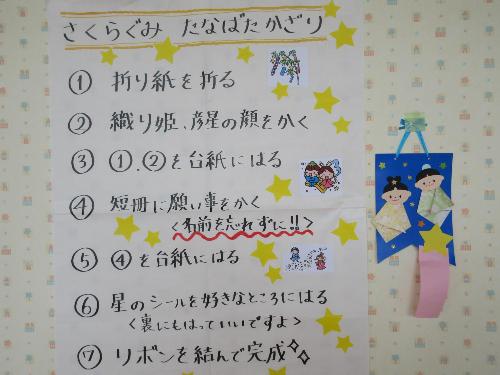 さくらぐみ たなばたかざり
① 折り紙を折る
② 織り姫、彦星の顔をかく
③ ①、②を台紙にはる
④ 短冊に願い事をかく
<名前を忘れずに!!>
⑤ ④を台紙にはる
⑥ 星のシールを好きなところにはる
<裏にもはっていいですよ>
⑦ リボンを結んで完成